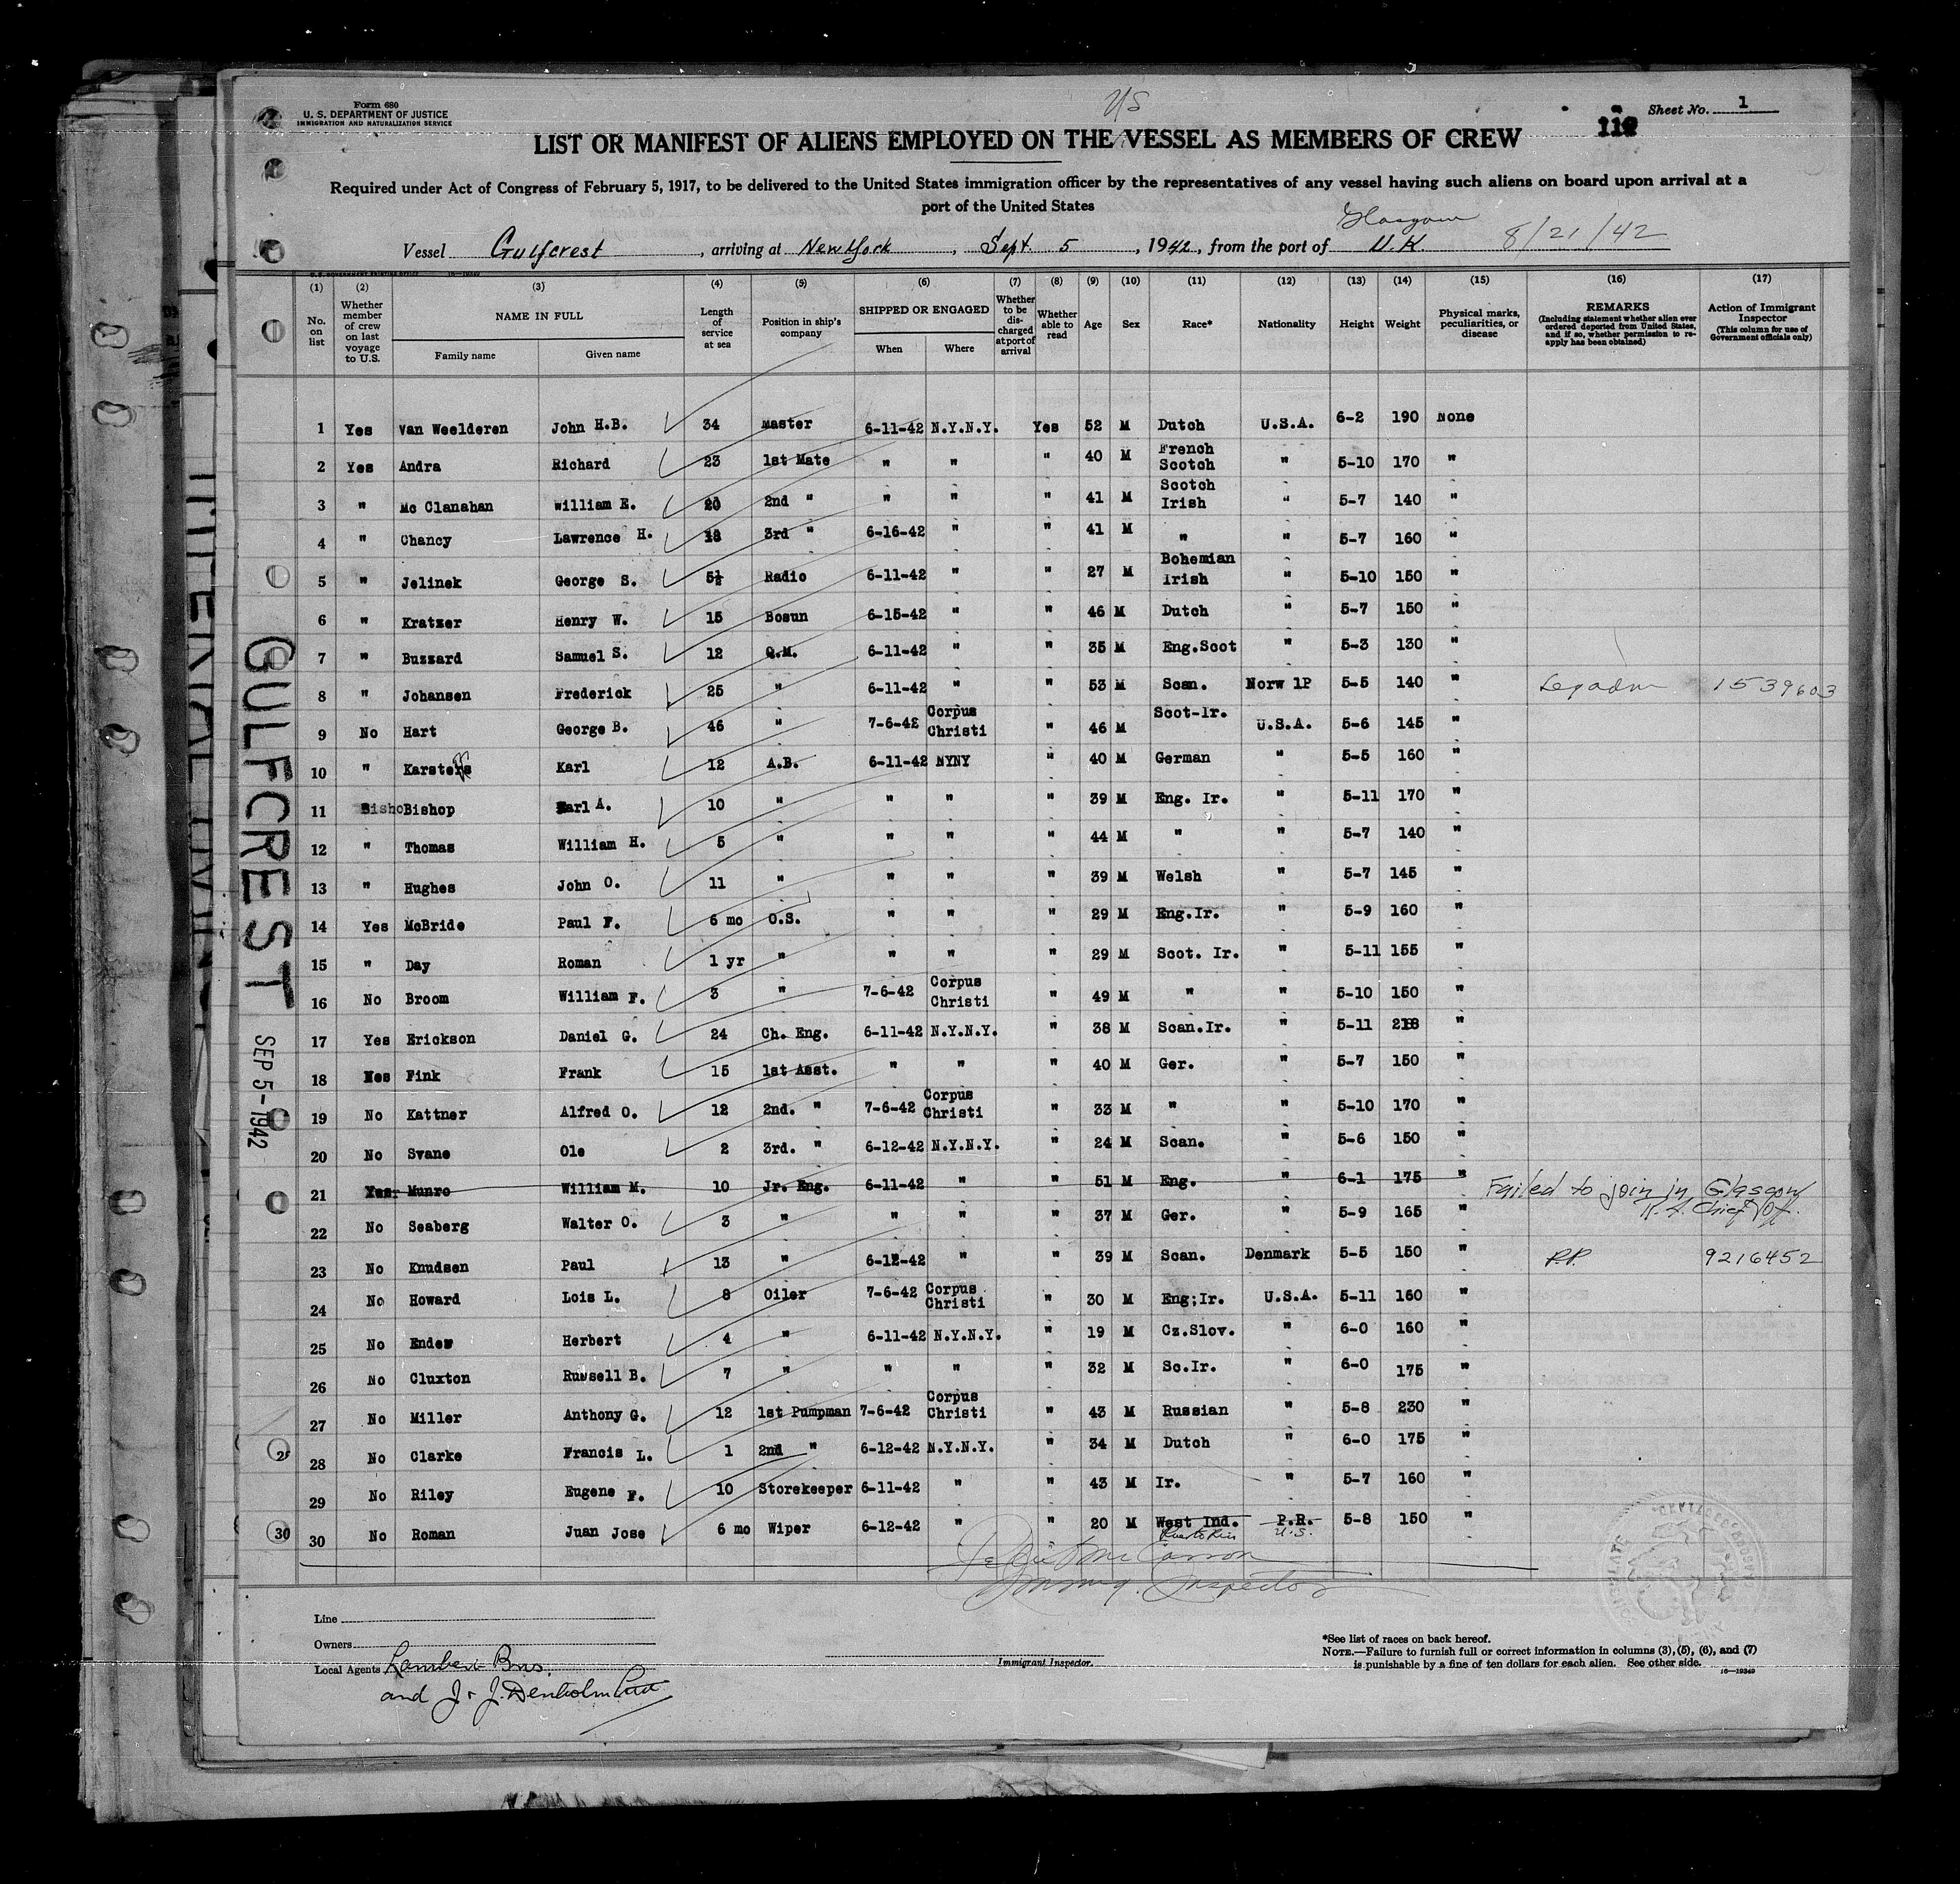 Form 680
U. S. DEPARTMENT OF JUSTICE
IMMIGRATION AND NATURALIZATION SERVICE
US
Sheet No. 1
LIST OR MANIFEST OF ALIENS EMPLOYED ON THE VESSEL AS MEMBERS OF CREW
Required under Act of Congress of February 5, 1917, to be delivered to the United States immigration officer by the representatives of any vessel having such aliens on board upon arrival at a
port of the United States
Glasgow
Vessel Gulfcrest, arriving at New York, Sept 5, 1942, from the port of U.K. 8/21/42
(1) (2) (3) (4) (5) (6) (7) (8) (9) (10) (11) (12) (13) (14) (15) (16) (17)
No. on list
Whether member of crew on last voyage to U.S.
NAME IN FULL
Family name
Given name
Length of service at sea
Position in ship's company
SHIPPED OR ENGAGED
When
Where
Whether to be discharged at port of arrival
Whether able to read
Age
Sex
Race*
Nationality
Height
Weight
Physical marks, peculiarities, or disease
REMARKS
(Including statement whether alien ever ordered deported from United States, and if so, whether permission to reapply has been obtained)
Action of Immigrant Inspector
(This column for use of Government officials only)
1 Yes Van Weelderen John H.B. 34 Master 6-11-42 N.Y.N.Y. Yes 52 M Dutch U.S.A. 6-2 190 None
2 Yes Andra Richard 23 1st Mate " " " 40 M French Scotch " 5-10 170 "
3 " Mc Clanahan William E. 20 2nd " " " " 41 M Scotch Irish " 5-7 140 "
4 " Chancy Lawrence H. 18 3rd " 6-16-42 " " 41 M " " 5-7 160 "
5 " Jelinek George S. 5½ Radio 6-11-42 " " 27 M Bohemian Irish " 5-10 150 "
6 " Kratzer Henry W. 15 Bosun 6-15-42 " " 46 M Dutch " 5-7 150 "
7 " Buzzard Samuel S. 12 Q.M. 6-11-42 " " 35 M Eng.Scot " 5-3 130 "
8 " Johansen Frederick 25 " 6-11-42 " " 53 M Scan. Norw 1P 5-5 140 " 1539603
9 No Hart George B. 46 " 7-6-42 Corpus Christi " 46 M Scot-Ir. U.S.A. 5-6 145 "
10 " Karstens Karl 12 A.B. 6-11-42 NYNY " 40 M German " 5-5 160 "
11 Bisho Bishop Earl A. 10 " " " " 39 M Eng. Ir. " 5-11 170 "
12 " Thomas William H. 5 " " " " 44 M " " 5-7 140 "
13 " Hughes John O. 11 " " " " 39 M Welsh " 5-7 145 "
14 Yes McBride Paul F. 6 mo O.S. " " " 29 M Eng.Ir. " 5-9 160 "
15 " Day Roman 1 yr " " " " 29 M Scot. Ir. " 5-11 155 "
16 No Broom William F. 3 " 7-6-42 Corpus Christi " 49 M " " 5-10 150 "
17 Yes Erickson Daniel G. 24 Ch. Eng. 6-11-42 N.Y.N.Y. " 38 M Scan.Ir. " 5-11 218 "
18 Yes Fink Frank 15 1st Asst. " " " 40 M Ger. " 5-7 150 "
19 No Kattner Alfred O. 12 2nd. " 7-6-42 Corpus Christi " 33 M " " 5-10 170 "
20 No Svane Ole 2 3rd. " 6-12-42 N.Y.N.Y. " 24 M Scan. " 5-6 150 "
21 Yes Munro William M. 10 Jr. Eng. 6-11-42 " " 51 M Eng. " 6-1 175 " Failed to join in Glasgow
22 No Seaberg Walter O. 3 " " " " 37 M Ger. " 5-9 165 " Chief Off.
23 No Knudsen Paul 13 " 6-12-42 " " 39 M Scan. Denmark 5-5 150 " P.P. 9216452
24 No Howard Lois L. 8 Oiler 7-6-42 Corpus Christi " 30 M Eng;Ir. U.S.A. 5-11 160 "
25 No Ender Herbert 4 " 6-11-42 N.Y.N.Y. " 19 M Cz.Slov. " 6-0 160 "
26 No Cluxton Russell B. 7 " " " " 32 M Sc.Ir. " 6-0 175 "
27 No Miller Anthony G. 12 1st Pumpman 7-6-42 Corpus Christi " 43 M Russian " 5-8 230 "
28 No Clarke Francis L. 1 2nd " 6-12-42 N.Y.N.Y. " 34 M Dutch " 6-0 175 "
29 No Riley Eugene F. 10 Storekeeper 6-11-42 " " 43 M Ir. " 5-7 160 "
30 30 No Roman Juan Jose 6 mo Wiper 6-12-42 " " 20 M West Ind. P.R. 5-8 150 "
U.S.
Immig. Inspector
GULFCREST
SEP 5-1942
Line
Owners
Local Agents Lambert Bros.
and J. & J. Denholm Ltd
Immigrant Inspector.
*See list of races on back hereof.
NOTE.—Failure to furnish full or correct information in columns (3), (5), (6), and (7)
is punishable by a fine of ten dollars for each alien. See other side.
16—19349